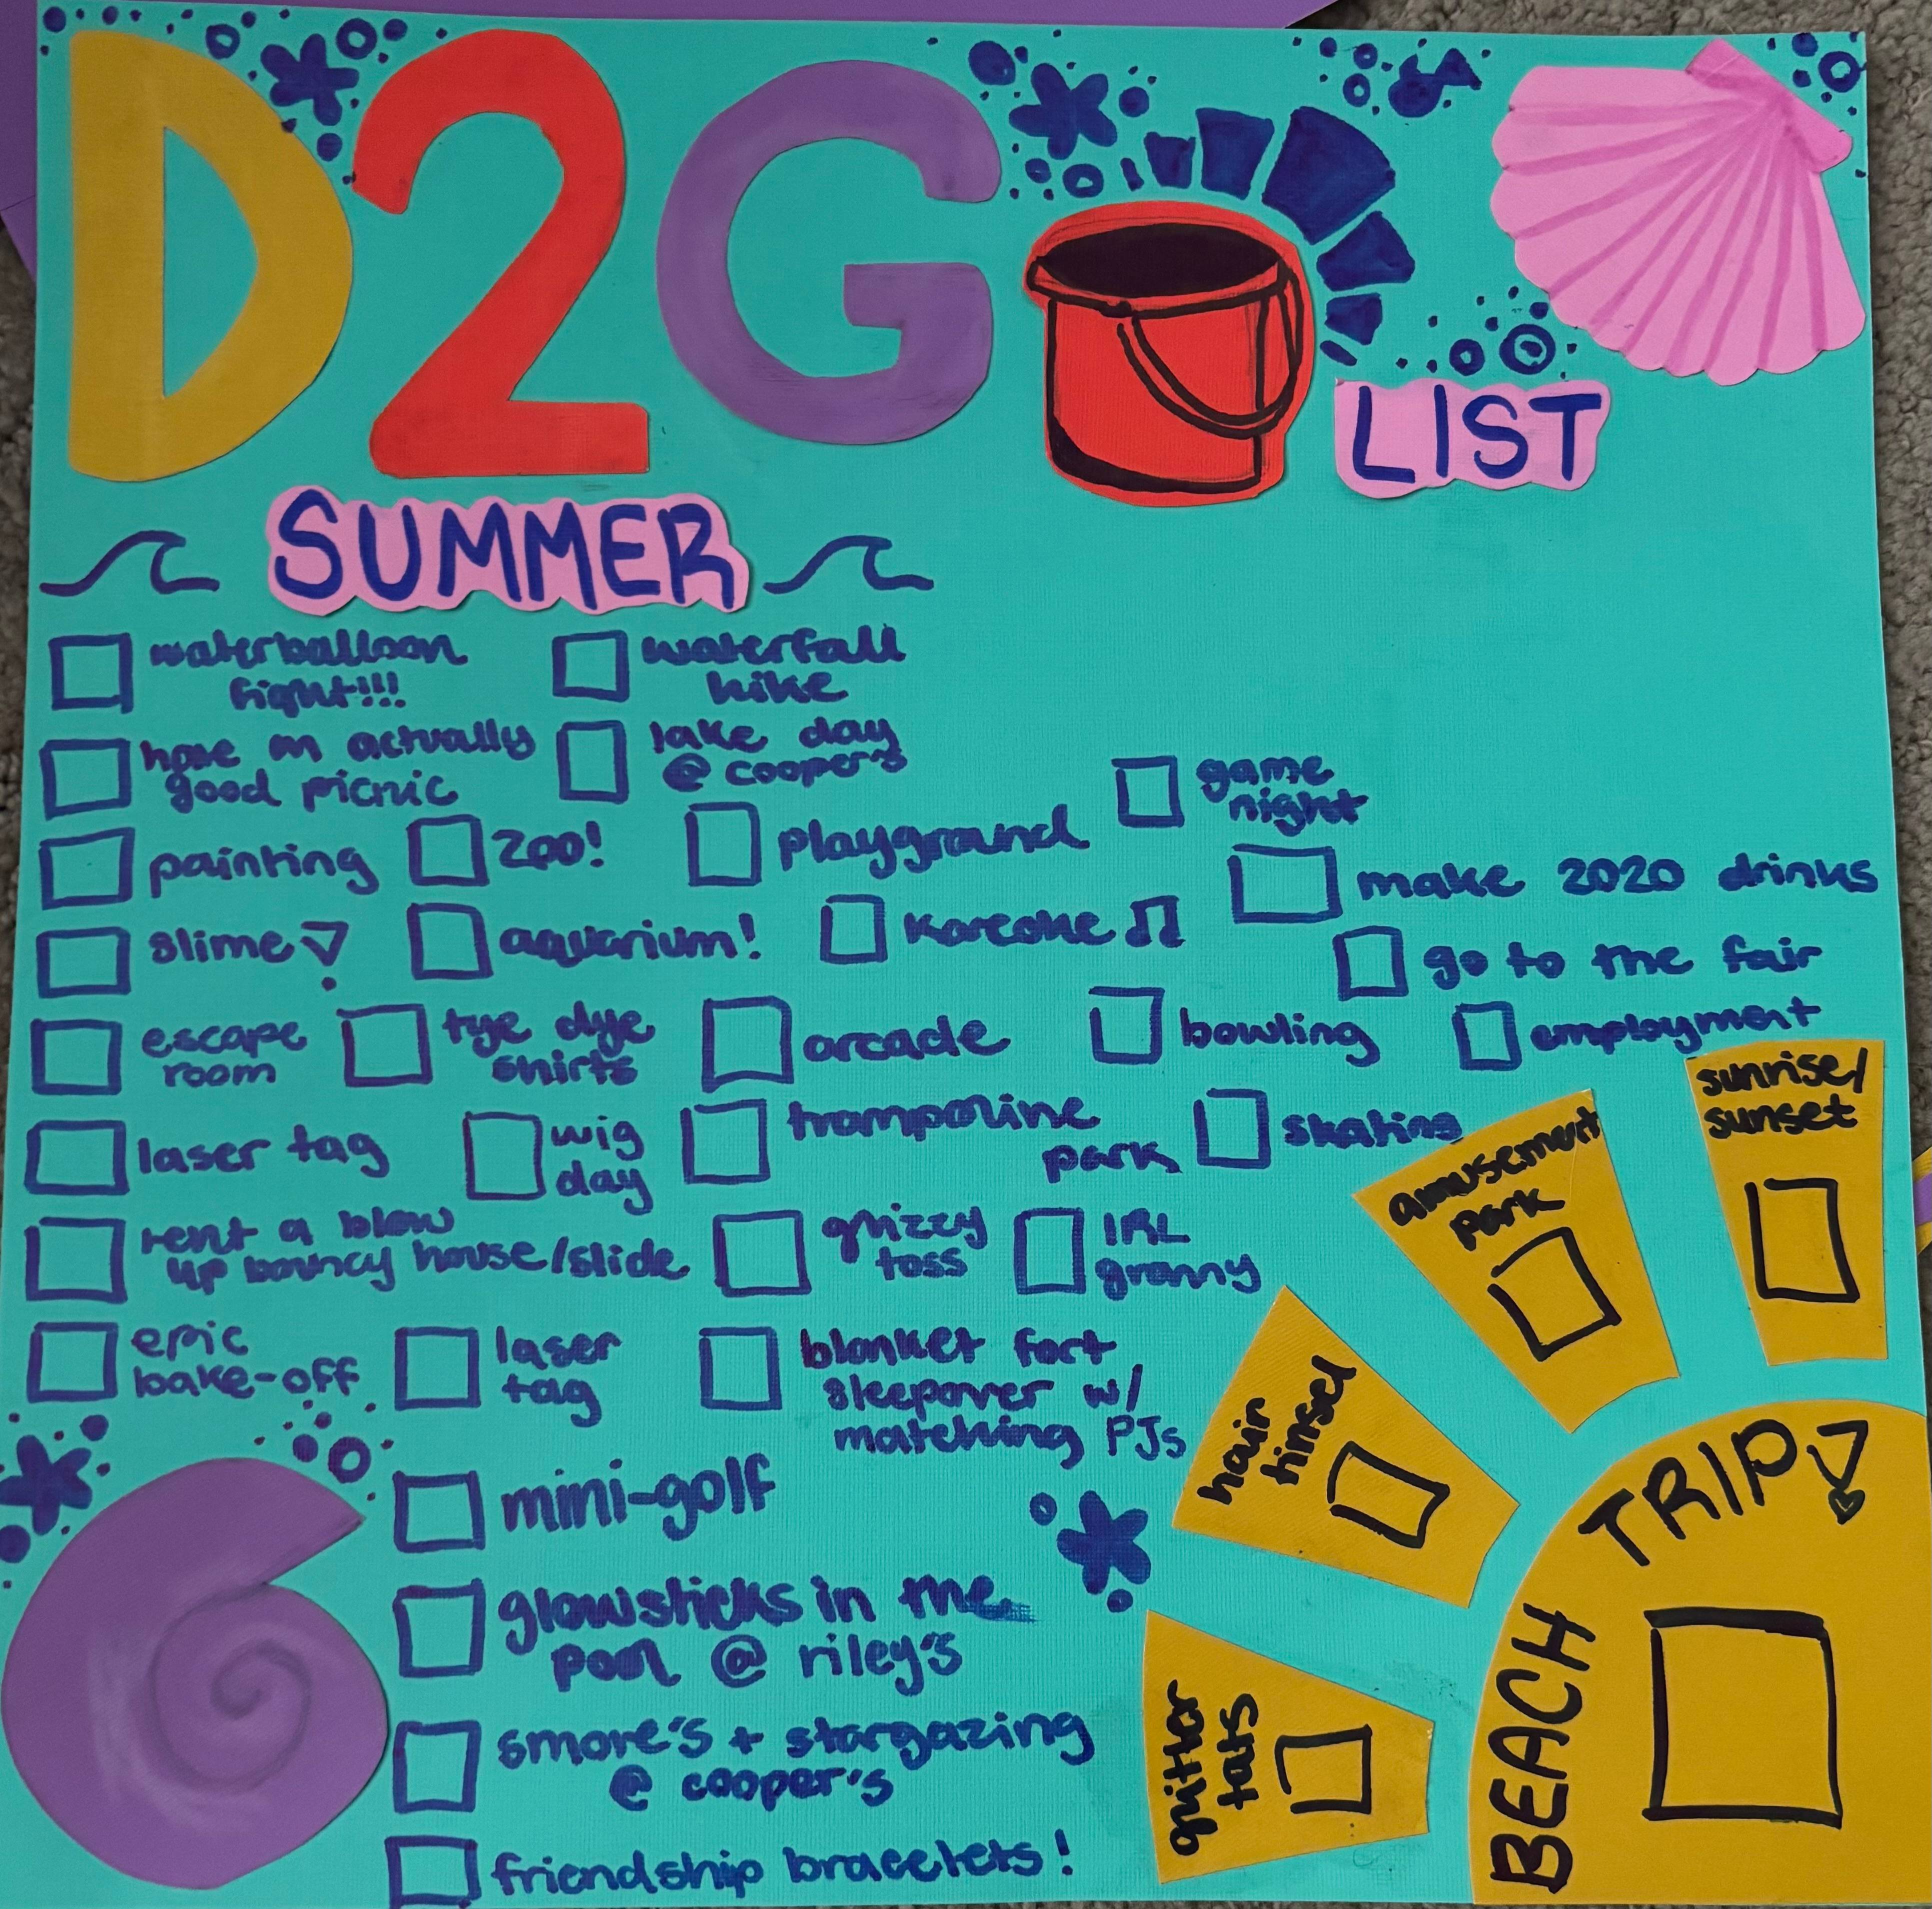 D2G
LIST
SUMMER
waterballoon
fight!!!
waterfall
hike
have an actually
good picnic
lake day
@ cooper's
game
night
painting
zoo!
playground
make 2020 drinks
slime!
aquarium!
Kareoke ♫
go to the fair
escape
room
tye dye
shirts
arcade
bowling
employment
laser tag
wig
day
trampoline
park
skating
rent a blow
up bouncy house/slide
grizzy
toss
IRL
granny
epic
bake-off
laser
tag
blanket fort
sleepover w/
matching PJs
mini-golf
glowsticks in the
pool @ riley's
smore's + stargazing
@ cooper's
friendship bracelets!
sunrise/
sunset
amusement
park
hair
tinsel
glitter
tats
BEACH TRIP!